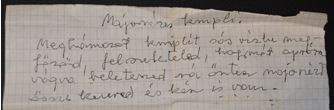 Majonézes krumpli.
Meghámozot krumplit sós vízbe meg-
főzöd, felszeleteled, hagymát apróra
vágva, beleteszed rá öntes majonézt
össze kevered és kén is van.